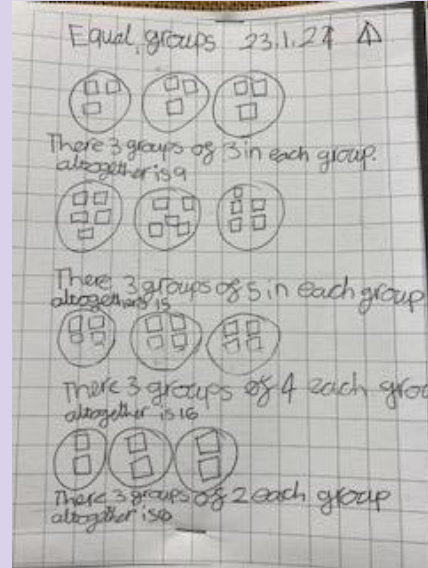 Equal groups 23.1.24
There 3 groups of 3 in each group.
altogether is 9
There 3 groups of 5 in each group
altogether is 15
There 3 groups of 4 each grou
altogether is 16
There 3 groups of 2 each group
altogether is 6